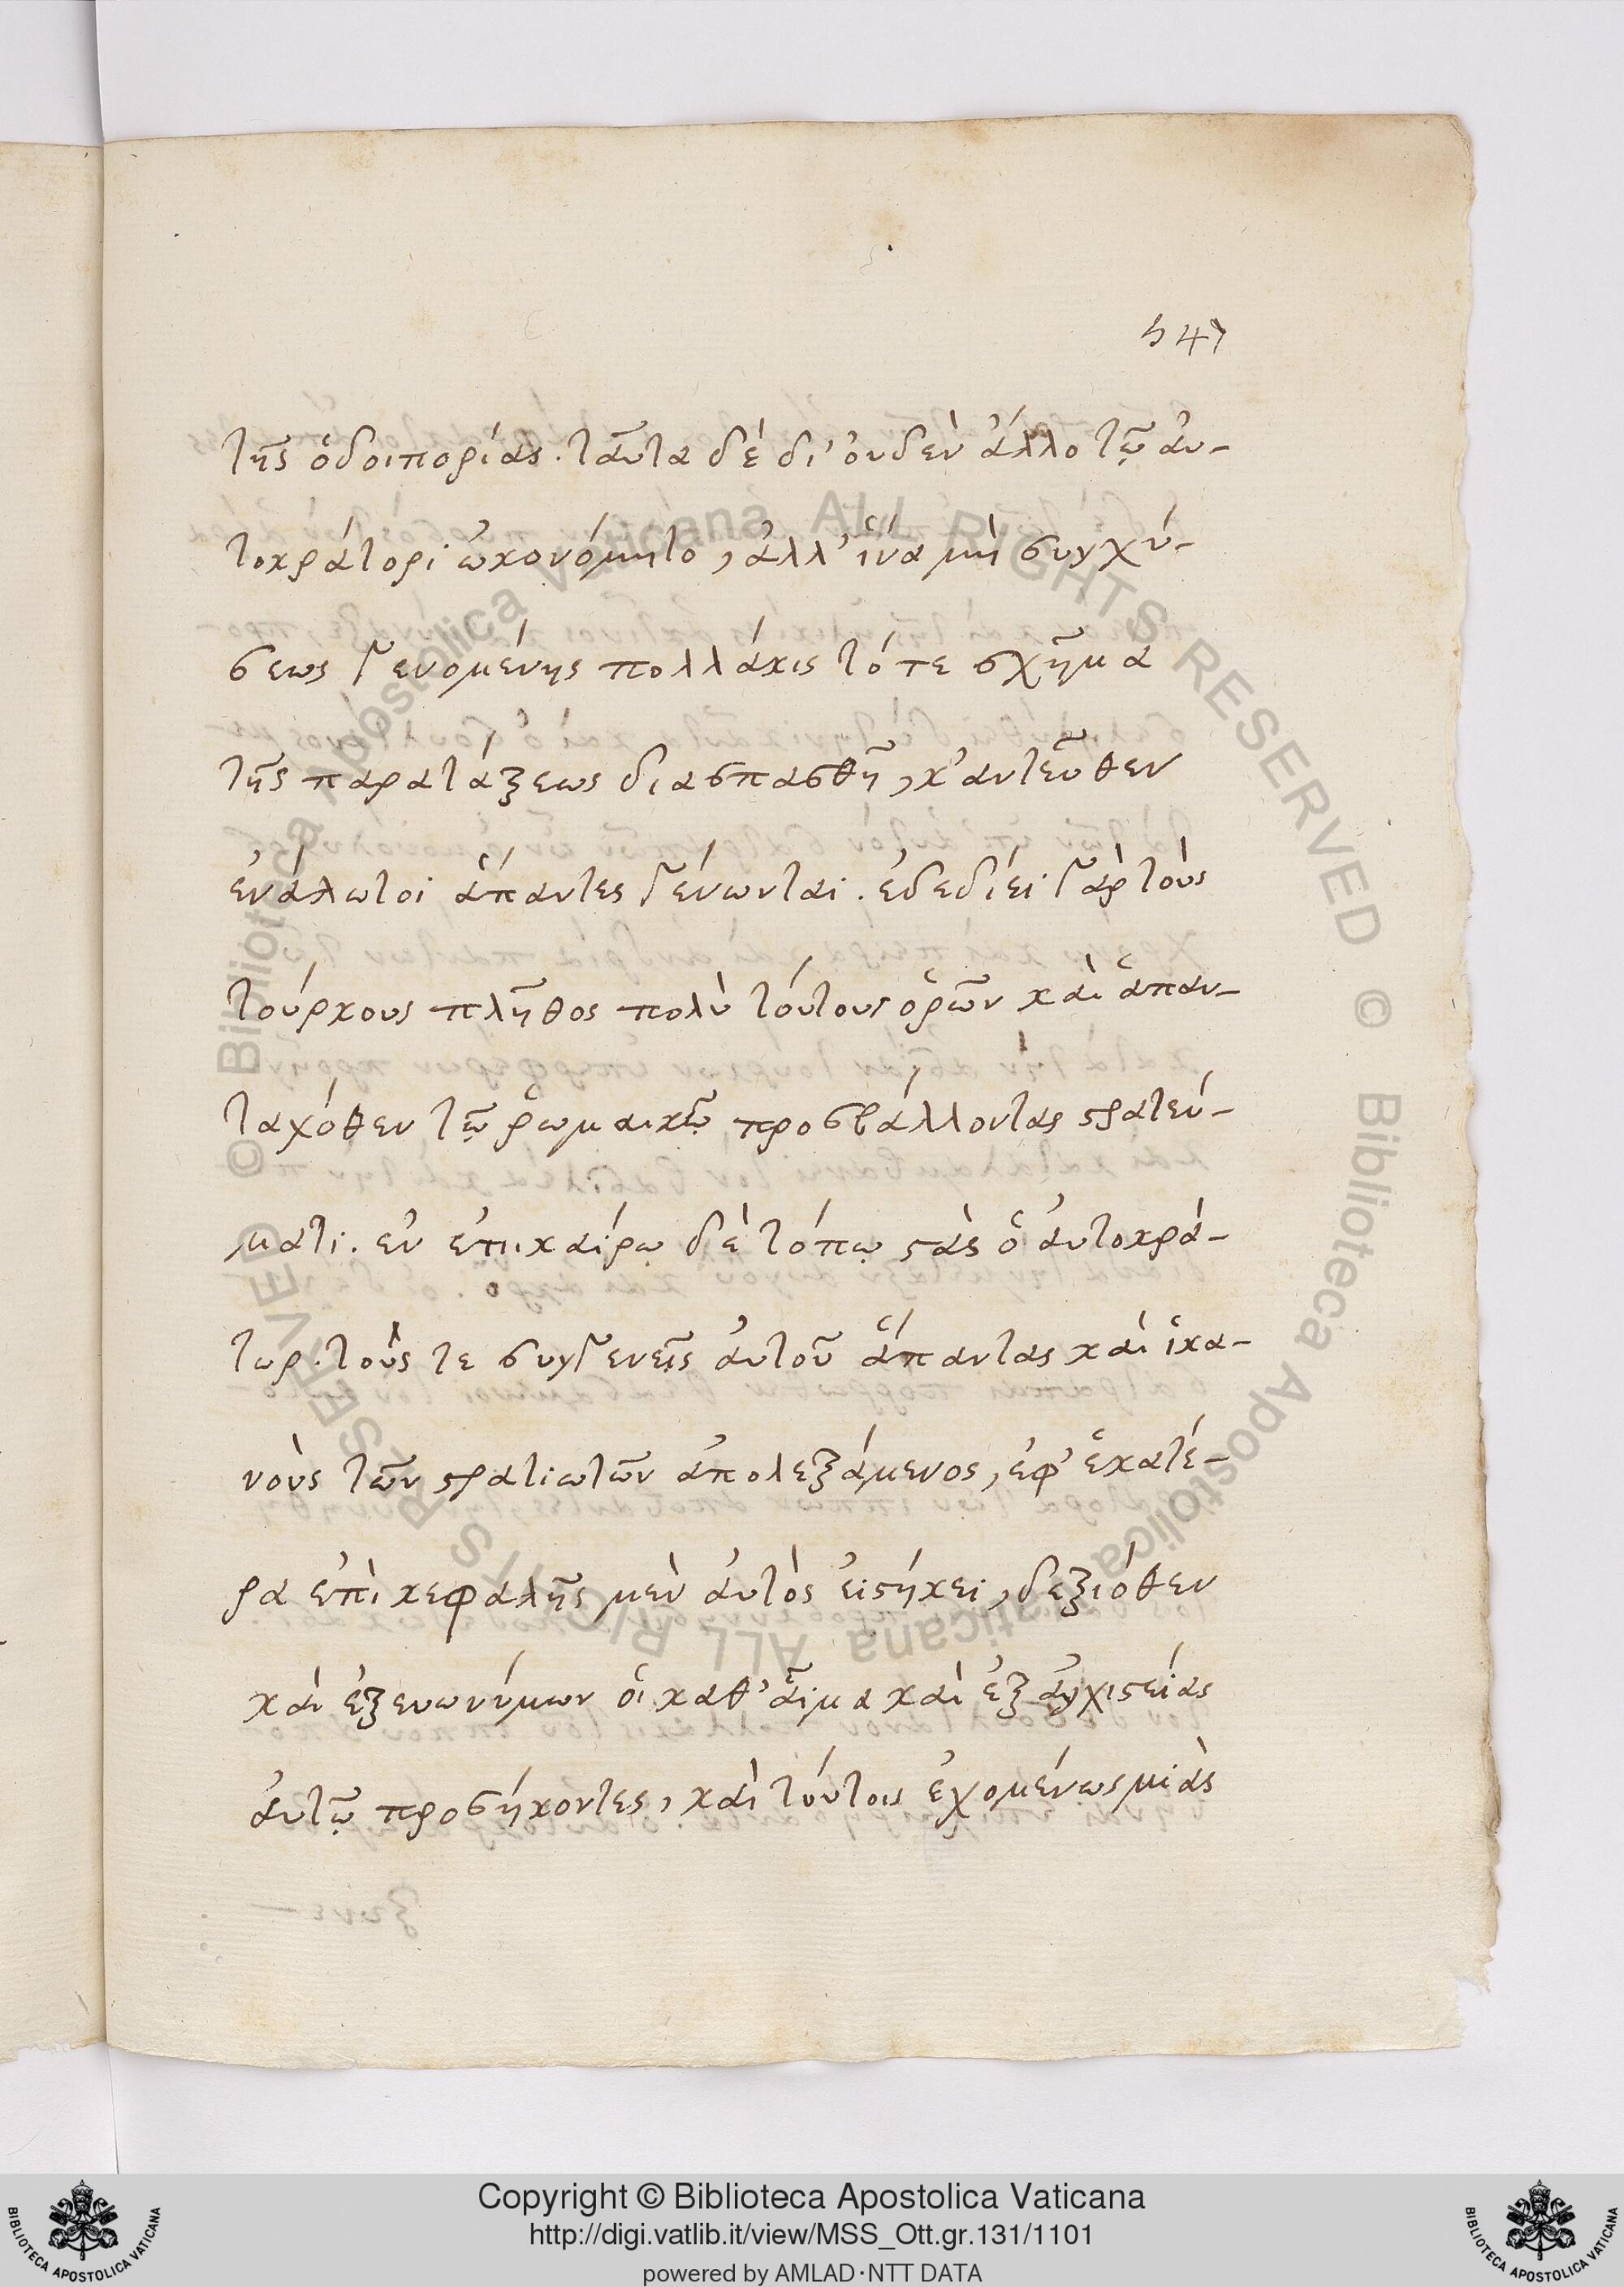 547
τῆς ὁδοιπορίας. ταῦτα δὲ δι' οὐδὲν ἄλλο τῷ αὐ-
τοκράτορι ὠκονόμητο, ἀλλ' ἵνα μὴ συγχύ-
σεως γενομένης πολλάκις τό τε σχῆμα
τῆς παρατάξεως διασπασθῇ, κ' αντεῦθεν
ἐνάλωτοι ἅπαντες γένωνται. ἐδεδίει γὰρ τοὺς
τούρκους πλῆθος πολὺ τούτους ὁρῶν καὶ ἅπαν-
ταχόθεν τῷ ῥωμαικῷ προσβάλλοντας στρατεύ-
ματι. ἐν ἐπικαίρῳ δὲ τόπῳ στὰς ὁ αὐτοκρά-
τωρ. τούς τε συγγενεῖς αὐτοῦ ἅπαντας καὶ ἱκα-
νοὺς τῶν στρατιωτῶν ἀπολεξάμενος, ἐφ' ἑκατέ-
ρα ἐπὶ κεφαλῆς μὲν αὐτὸς εἱστήκει, δεξιόθεν
καὶ ἐξευωνύμων οἱ καθ' αἷμα καὶ ἐξ ἀγχιστείας
αὐτῷ προσήκοντες, καὶ τούτοις ἐχομένως μιᾶς
Copyright © Biblioteca Apostolica Vaticana
http://digi.vatlib.it/view/MSS_Ott.gr.131/1101
powered by AMLAD·NTT DATA
BIBLIOTECA APOSTOLICA VATICANA
BIBLIOTECA APOSTOLICA VATICANA
© Biblioteca Apostolica Vaticana ALL RIGHTS RESERVED © Biblioteca Apostolica Vaticana ALL RIGHTS RESERVED